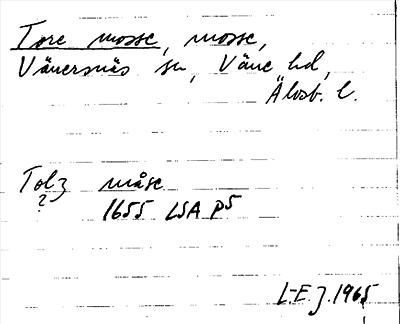 Tore mosse, mosse,
Vänersnäs sn, Väne hd,
Älvsb. l.
Tolz måse
?
1655 LSA P5
L-E. J. 1965